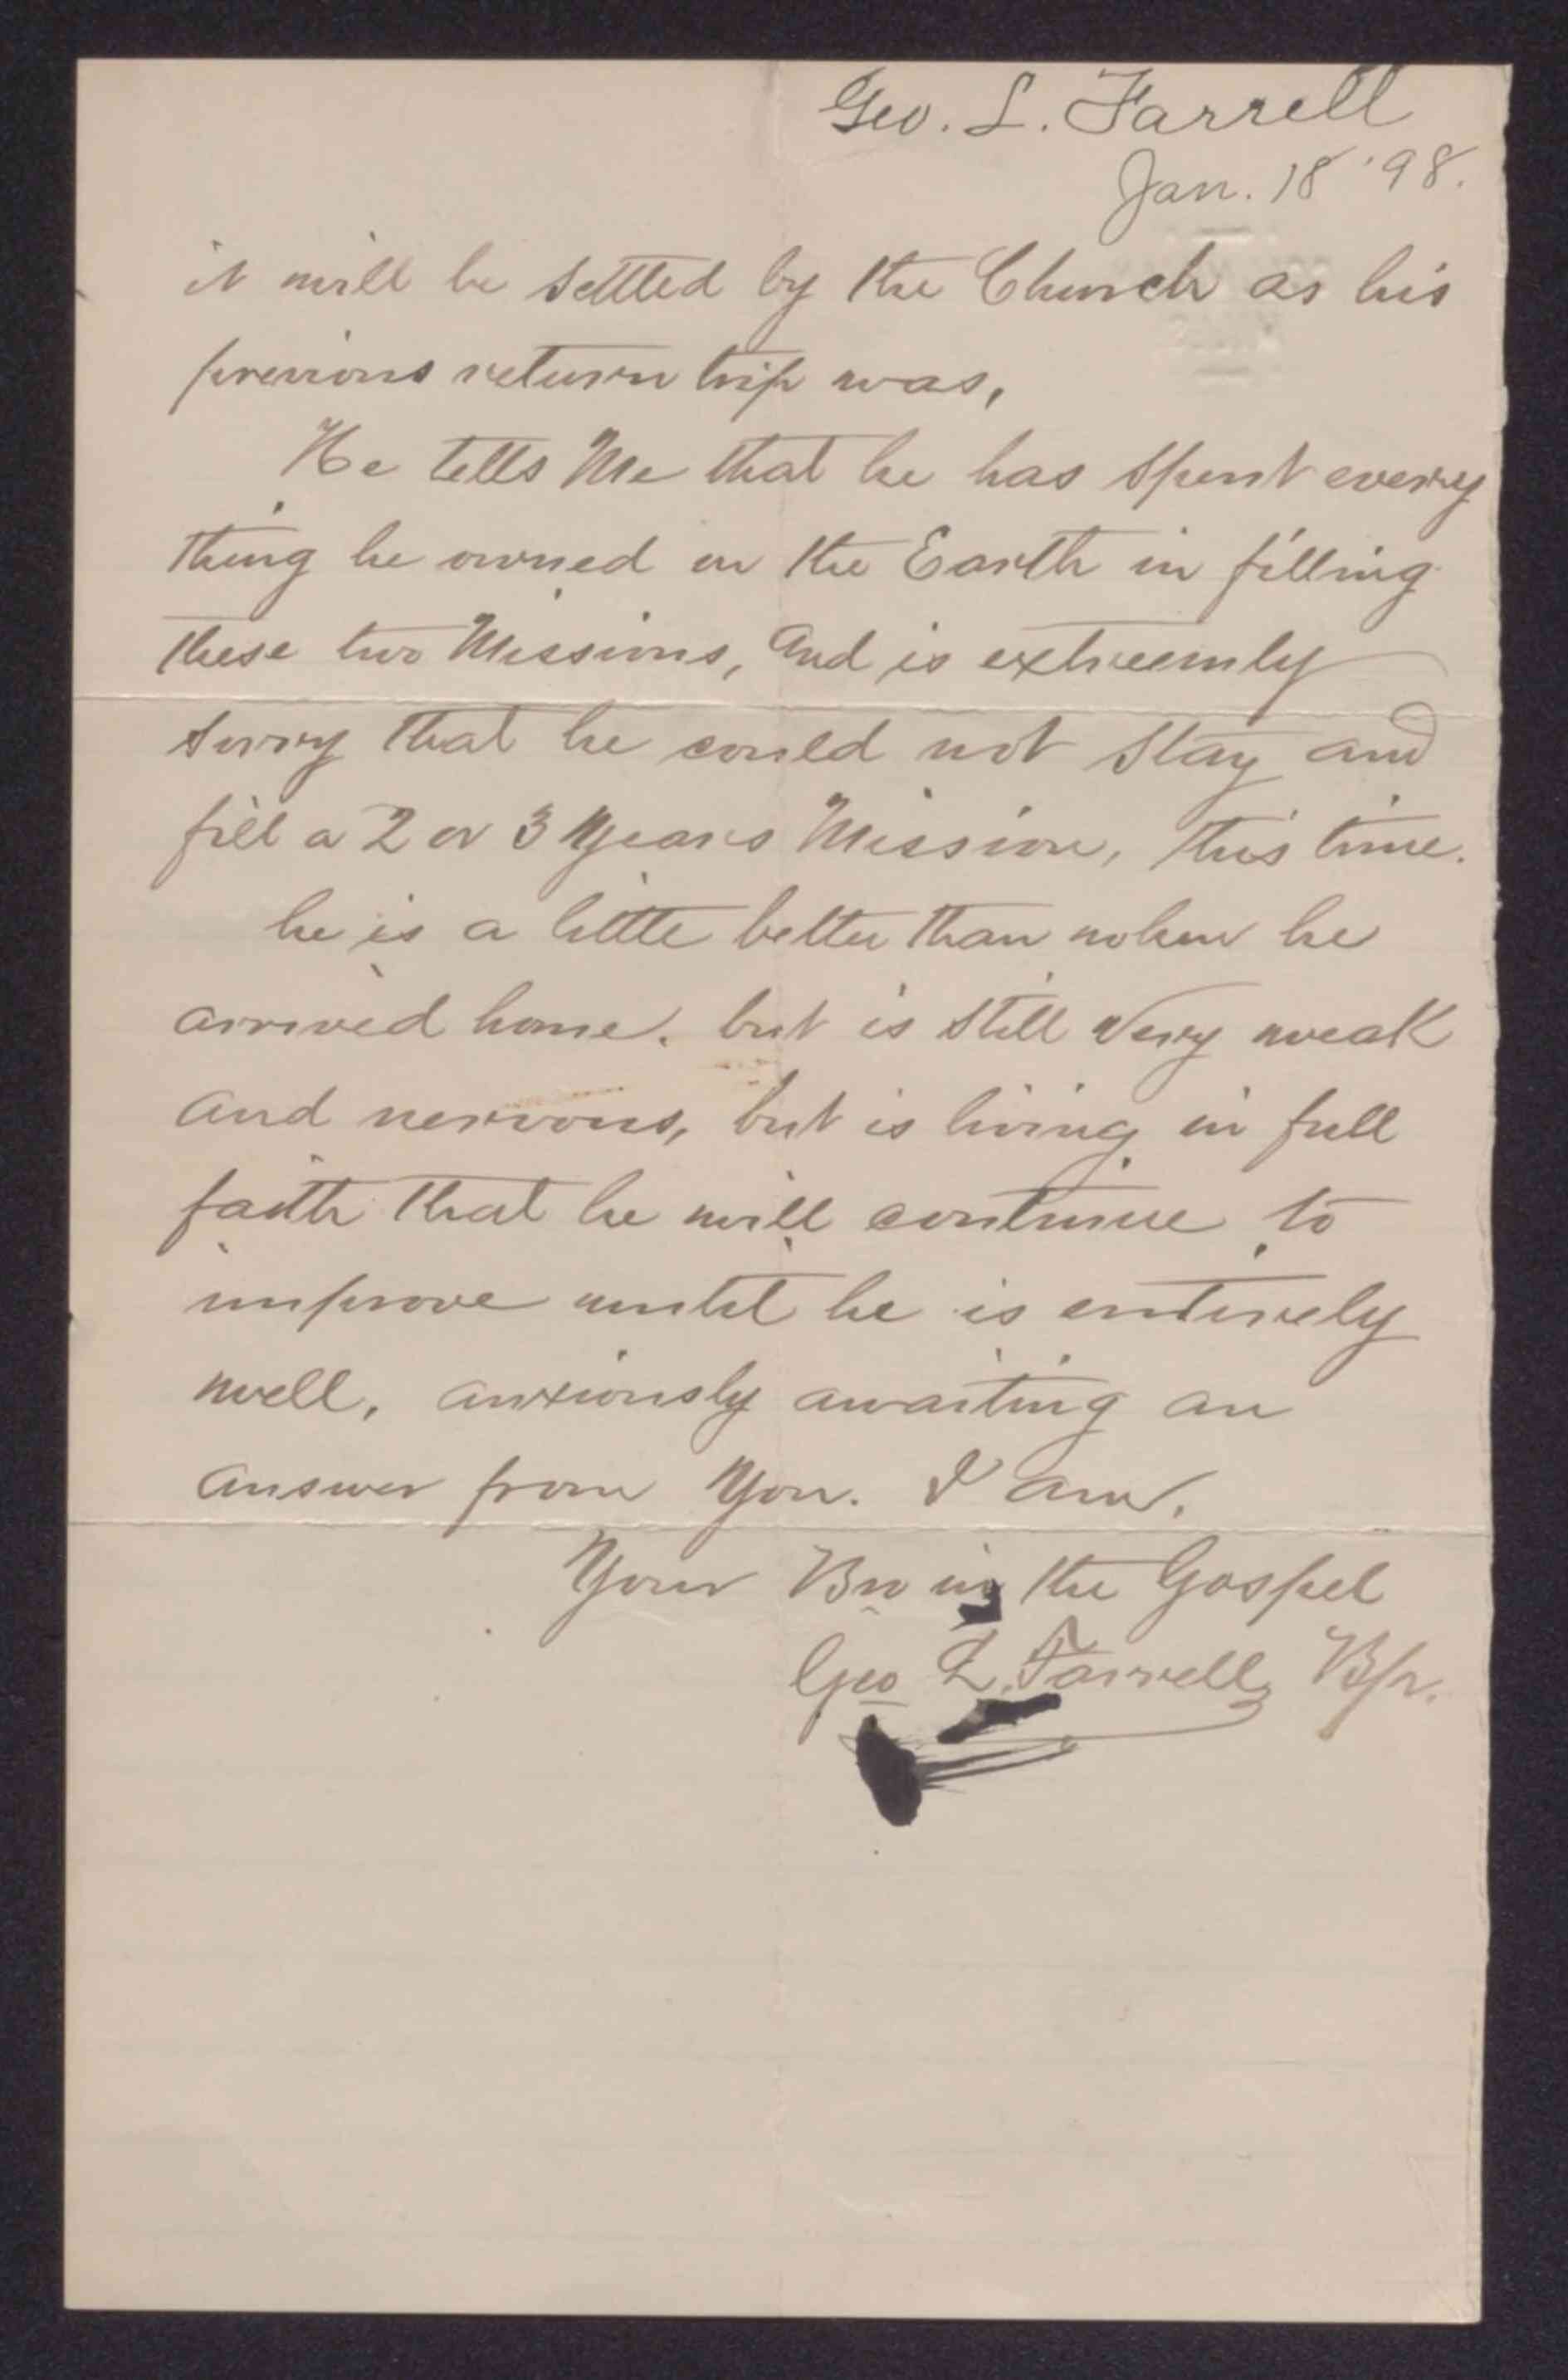 Geo. L. Farrell
Jan. 18 '98.
it will be settled by the Church as his
previous return trip was,
He tells Me that he has spent every
thing he owned on the Earth in filling
these two Missions, and is extreemly
sorry that he could not stay and
fill a 2 or 3 Years Mission, this time.
he is a little better than when he
arrived home. but is still very weak
and nervous, but is living in full
faith that he will continue to
improve until he is entirely
well, anxiously awaiting an
answer from You. I am.
Your Bro in the Gospel
Geo L. Farrell, Bp.